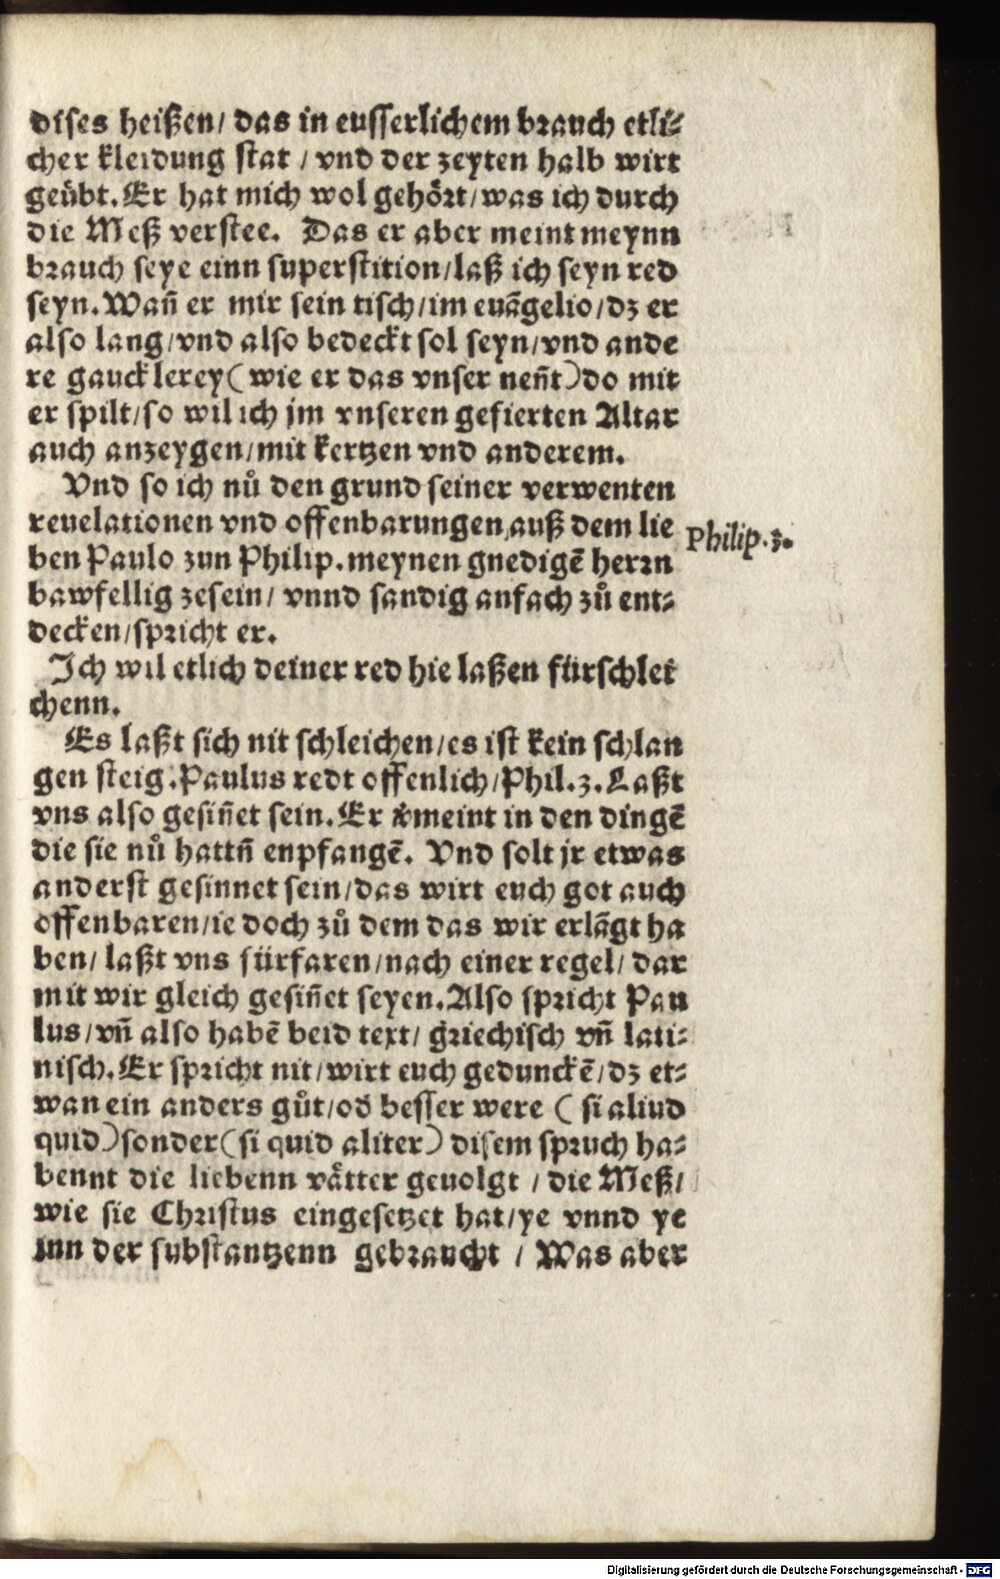 dises heißen/ das in eusserlichem brauch etli⸗
cher kleidung stat / vnd der zeyten halb wirt
geübt. Er hat mich wol gehört/ was ich durch
die Meß verstee. Das er aber meint meynn
brauch seye einn superstition/ laß ich seyn red
seyn. Wañ er mir sein tisch/ im euãgelio/ dz er
also lang/ vnd also bedeckt sol seyn/ vnd ande
re gaucklerey ( wie er das vnser neñt ) do mit
er spilt/ so wil ich jm vnseren gefierten Altar
auch anzeygen/ mit kertzen vnd anderem.
Vnd so ich nů den grund seiner verwenten
reuelationen vnd offenbarungen/ auß dem lie
ben Paulo zun Philip. meynen gnedigẽ herrn
Philip. 3.
bawfellig zesein/ vnnd sandig anfach zů ent⸗
decken/ spricht er.
Ich wil etlich deiner red hie laßen fürschlei
chenn.
Es laßt sich nit schleichen/ es ist kein schlan
gen steig. Paulus redt offenlich/ Phil. 3. Laßt
vns also gesiñet sein. Er v̓meint in den dingẽ
die sie nů hattñ enpfangẽ. Vnd solt jr etwas
anderst gesinnet sein/ das wirt euch got auch
offenbaren/ ie doch zů dem das wir erlãgt ha
ben/ laßt vns fürfaren/ nach einer regel/ dar
mit wir gleich gesiñet seyen. Also spricht Pau
lus/ vñ also habẽ beid text/ griechisch vñ lati⸗
nisch. Er spricht nit/ wirt euch gedunckẽ/ dz et⸗
wan ein anders gůt/ od̓ besser were ( si aliud
quid ) sonder ( si quid aliter ) disem spruch ha⸗
bennt die liebenn vätter geuolgt / die Meß/
wie sie Christus eingesetzet hat/ ye vnnd ye
inn der substantzenn gebraucht / Was aber
Digitalisierung gefördert durch die Deutsche Forschungsgemeinschaft - DFG